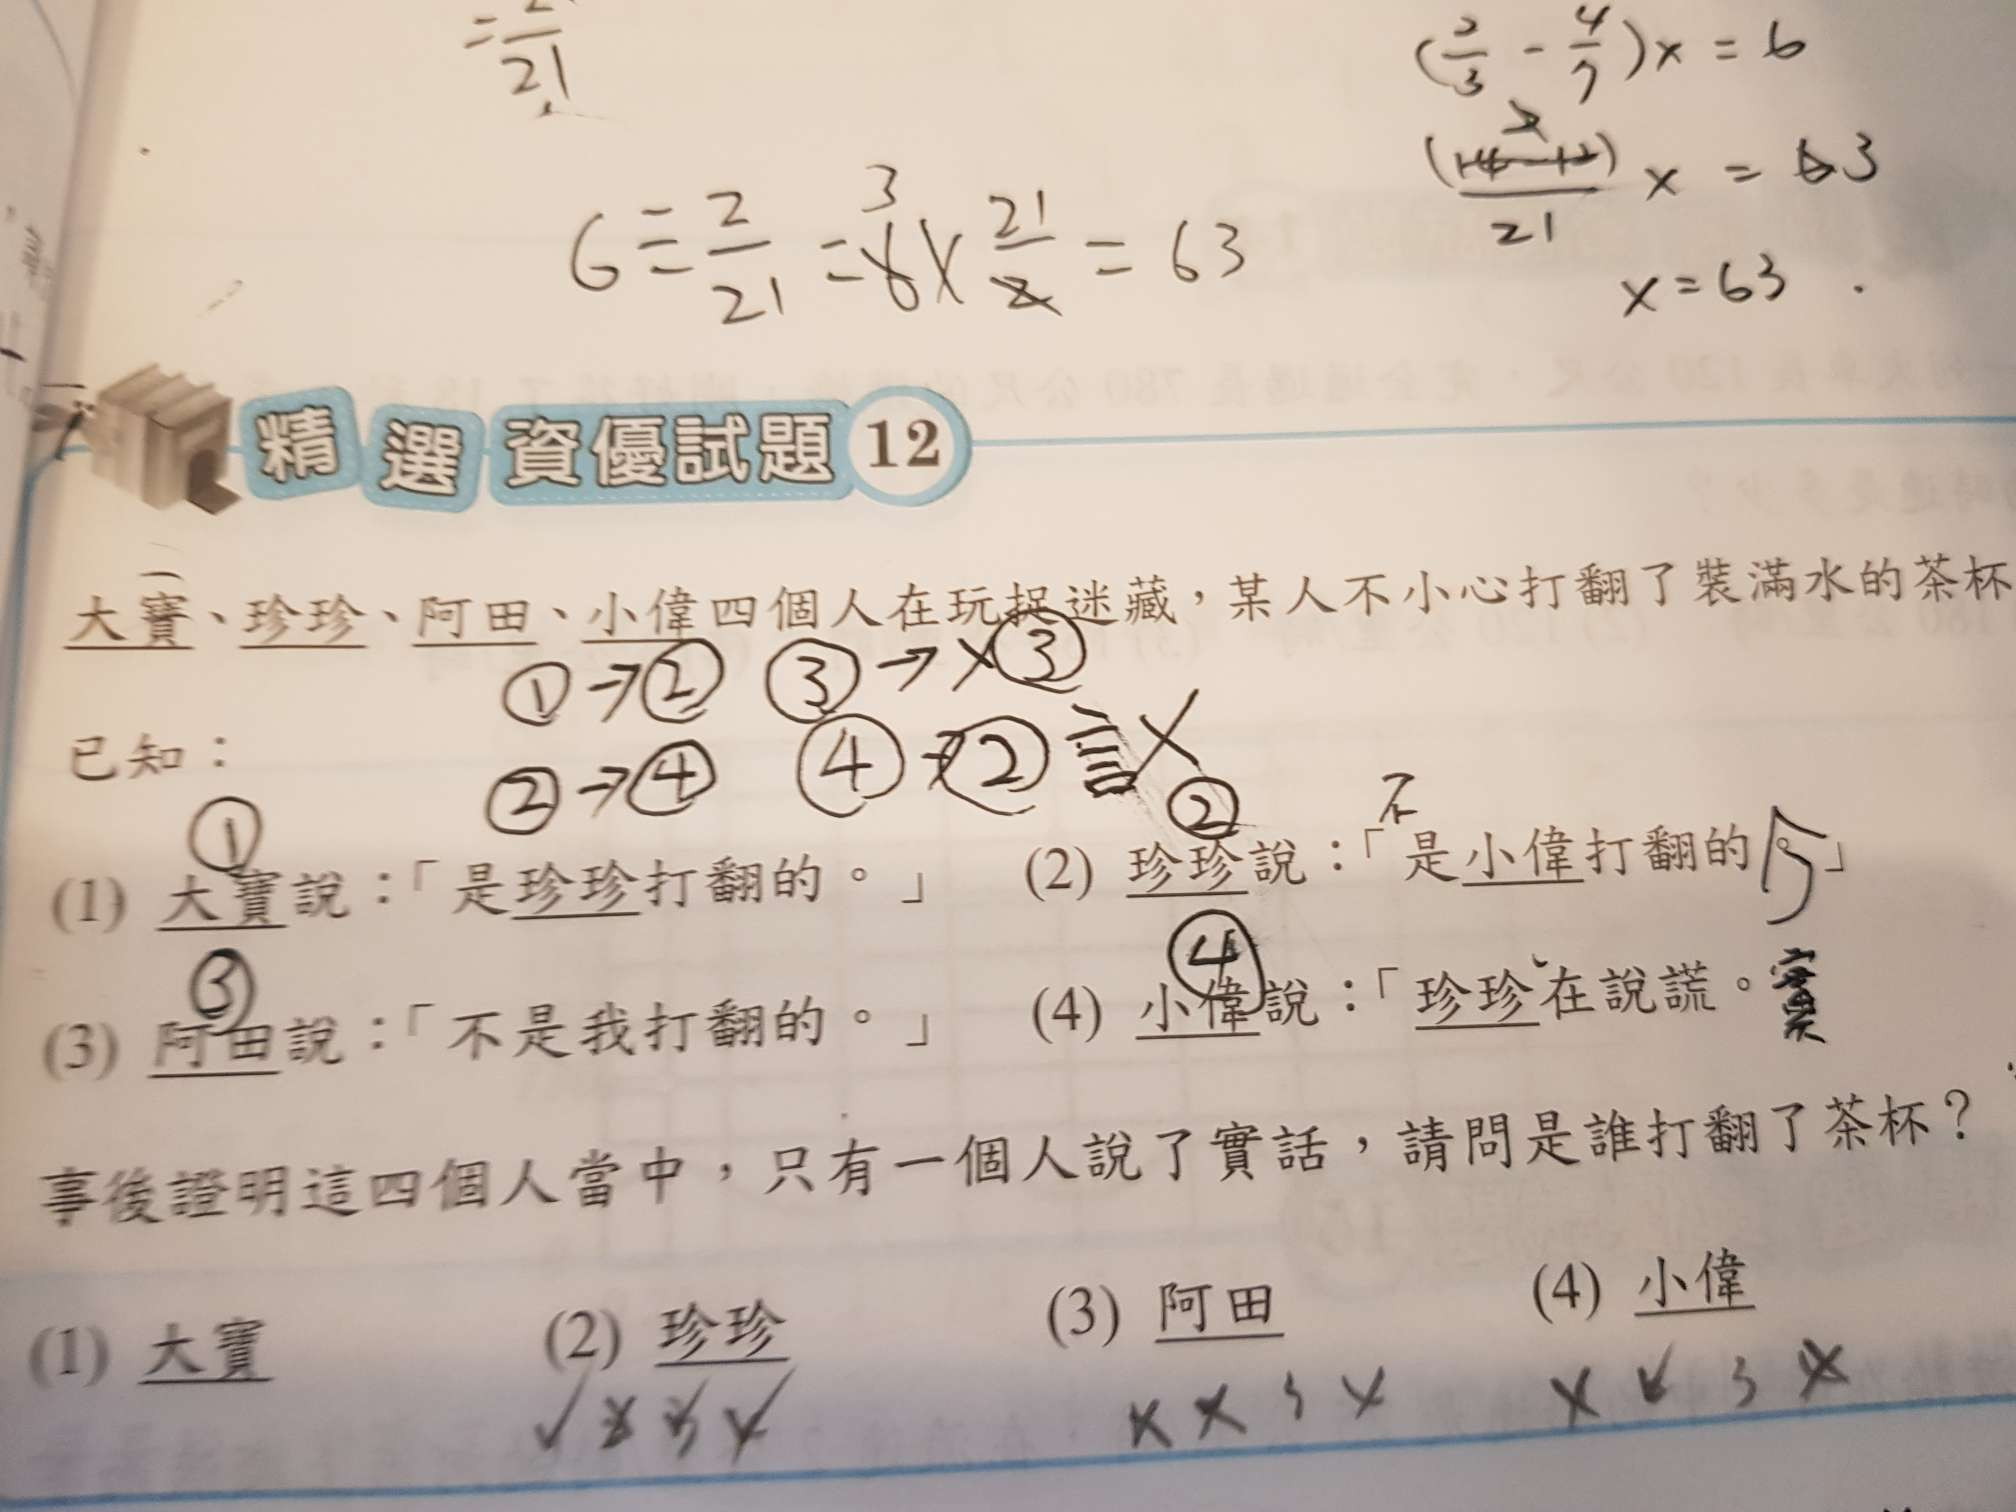 21
(2/3 - 4/7)x = 6
21 x = 63
6 ÷ 2/21 = 6 × 21/2 = 63
3
x = 63
精選資優試題 12
大寶、珍珍、阿田、小偉四個人在玩捉迷藏,某人不小心打翻了裝滿水的茶杯
① → ② ③ → × ③
已知:
② → ④ ④ → ② 言
① ② 不
(1) 大寶說:「是珍珍打翻的。」 (2) 珍珍說:「是小偉打翻的」
③ ④
(3) 阿田說:「不是我打翻的。」 (4) 小偉說:「珍珍在說謊。 實
事後證明這四個人當中,只有一個人說了實話,請問是誰打翻了茶杯?
(1) 大寶 (2) 珍珍 (3) 阿田 (4) 小偉